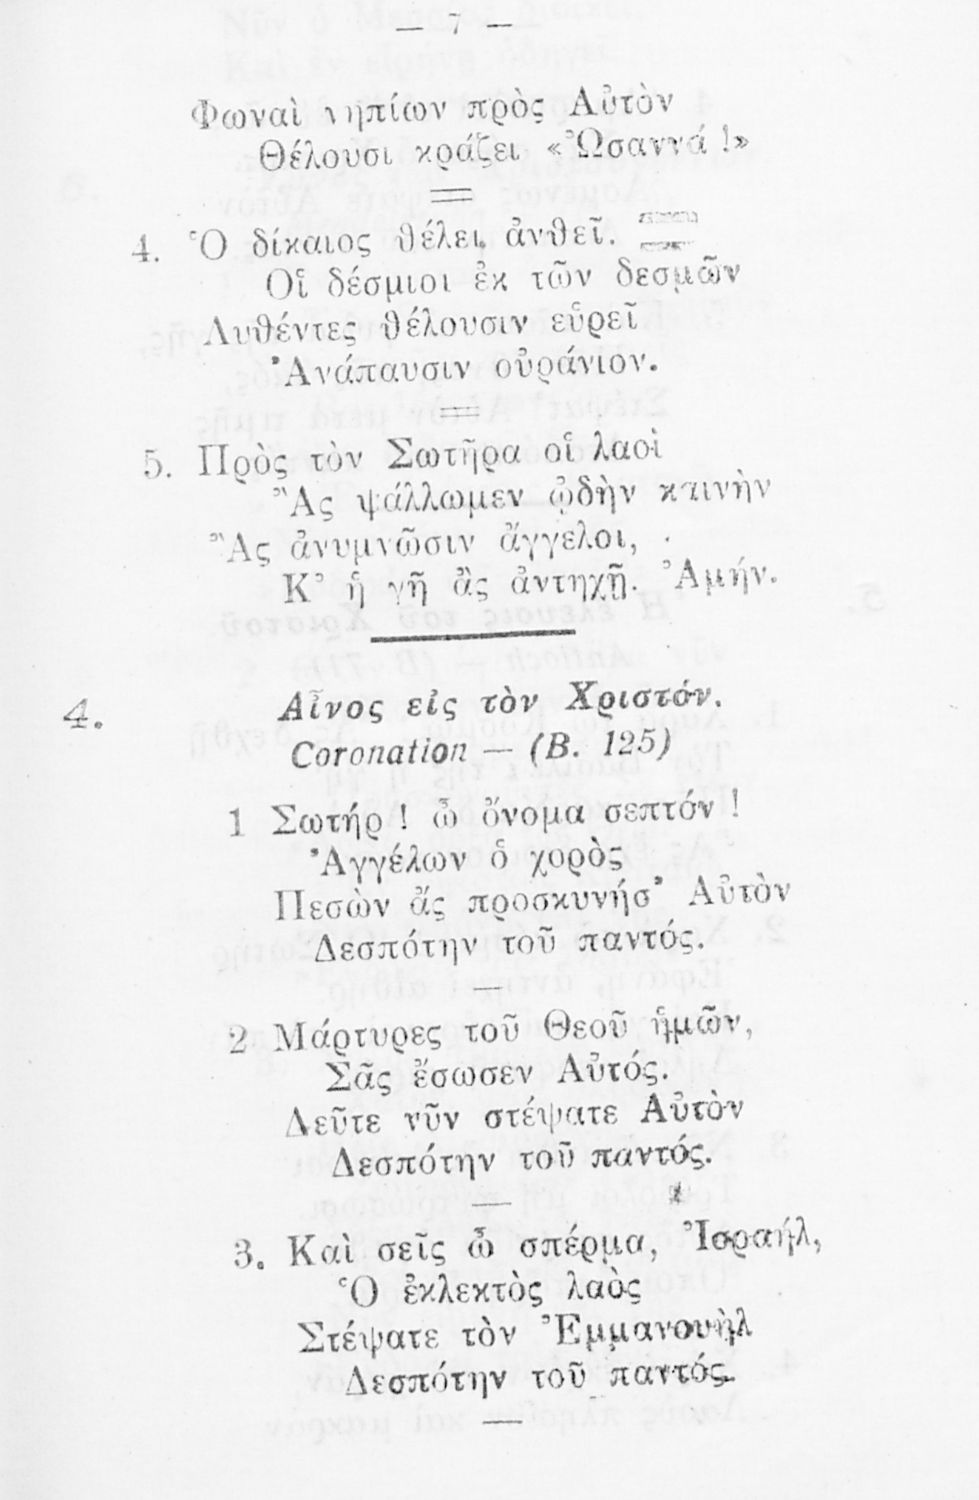 — 7 —
Φωναὶ νηπίων πρὸς Αὐτὸν
Θέλουσι κράζει «Ὡσαννά !»
4. Ὁ δίκαιος θέλει ἀνθεῖ.
Οἱ δέσμιοι ἐκ τῶν δεσμῶν
Λυθέντες θέλουσιν εὑρεῖ
Ἀνάπαυσιν οὐράνιον.
5. Πρὸς τὸν Σωτῆρα οἱ λαοὶ
Ἂς ψάλλωμεν ᾠδὴν καινὴν
Ἂς ἀνυμνῶσιν ἄγγελοι,
Κ' ἡ γῆ ἂς ἀντηχῇ. Ἀμήν.
4. Αἶνος εἰς τὸν Χριστόν.
Coronation — (B. 125)
1 Σωτήρ ! ὦ ὄνομα σεπτόν !
Ἀγγέλων ὁ χορὸς
Πεσὼν ἄς προσκυνήσ' Αὐτὸν
Δεσπότην τοῦ παντός.
2 Μάρτυρες τοῦ Θεοῦ ἡμῶν,
Σᾶς ἔσωσεν Αὐτός.
Δεῦτε νῦν στέψατε Αὐτὸν
Δεσπότην τοῦ παντός.
3. Καὶ σεῖς ὦ σπέρμα, Ἰσραήλ,
Ὁ ἐκλεκτὸς λαὸς
Στέψατε τὸν Ἐμμανουὴλ
Δεσπότην τοῦ παντός.